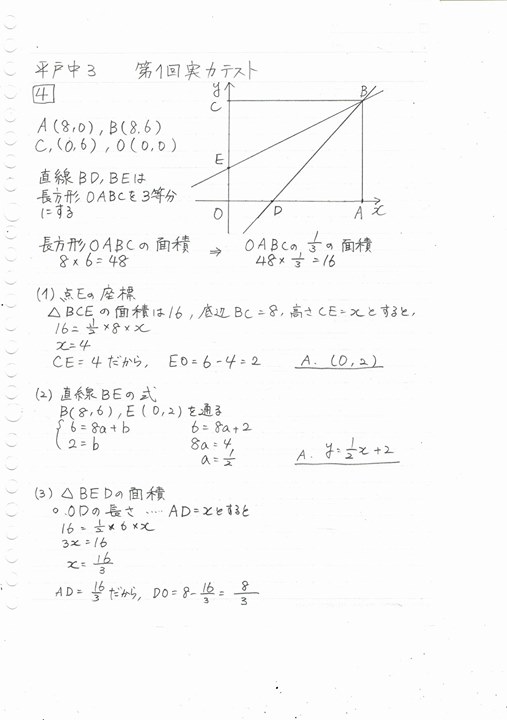 平戸中3 第1回実力テスト
4
A(8,0), B(8.6)
C,(0,6), O(0,0)
直線BD,BEは
長方形OABCを3等分
にする
y
C
B
E
O
D
A
x
長方形OABCの面積 ⇒ OABCの 1/3 の面積
8×6=48 48×1/3=16
(1) 点Eの座標
△BCEの面積は16, 底辺BC=8, 高さCE=xとすると,
16=1/2×8×x
x=4
CE=4だから, EO=6-4=2 A. (0,2)
(2) 直線BEの式
B(8,6), E(0,2)を通る
6=8a+b 6=8a+2
2=b 8a=4
a=1/2
A. y=1/2x+2
(3) △BEDの面積
○.ODの長さ …… AD=xとすると
16=1/2×6×x
3x=16
x=16/3
AD=16/3だから, DO=8-16/3=8/3